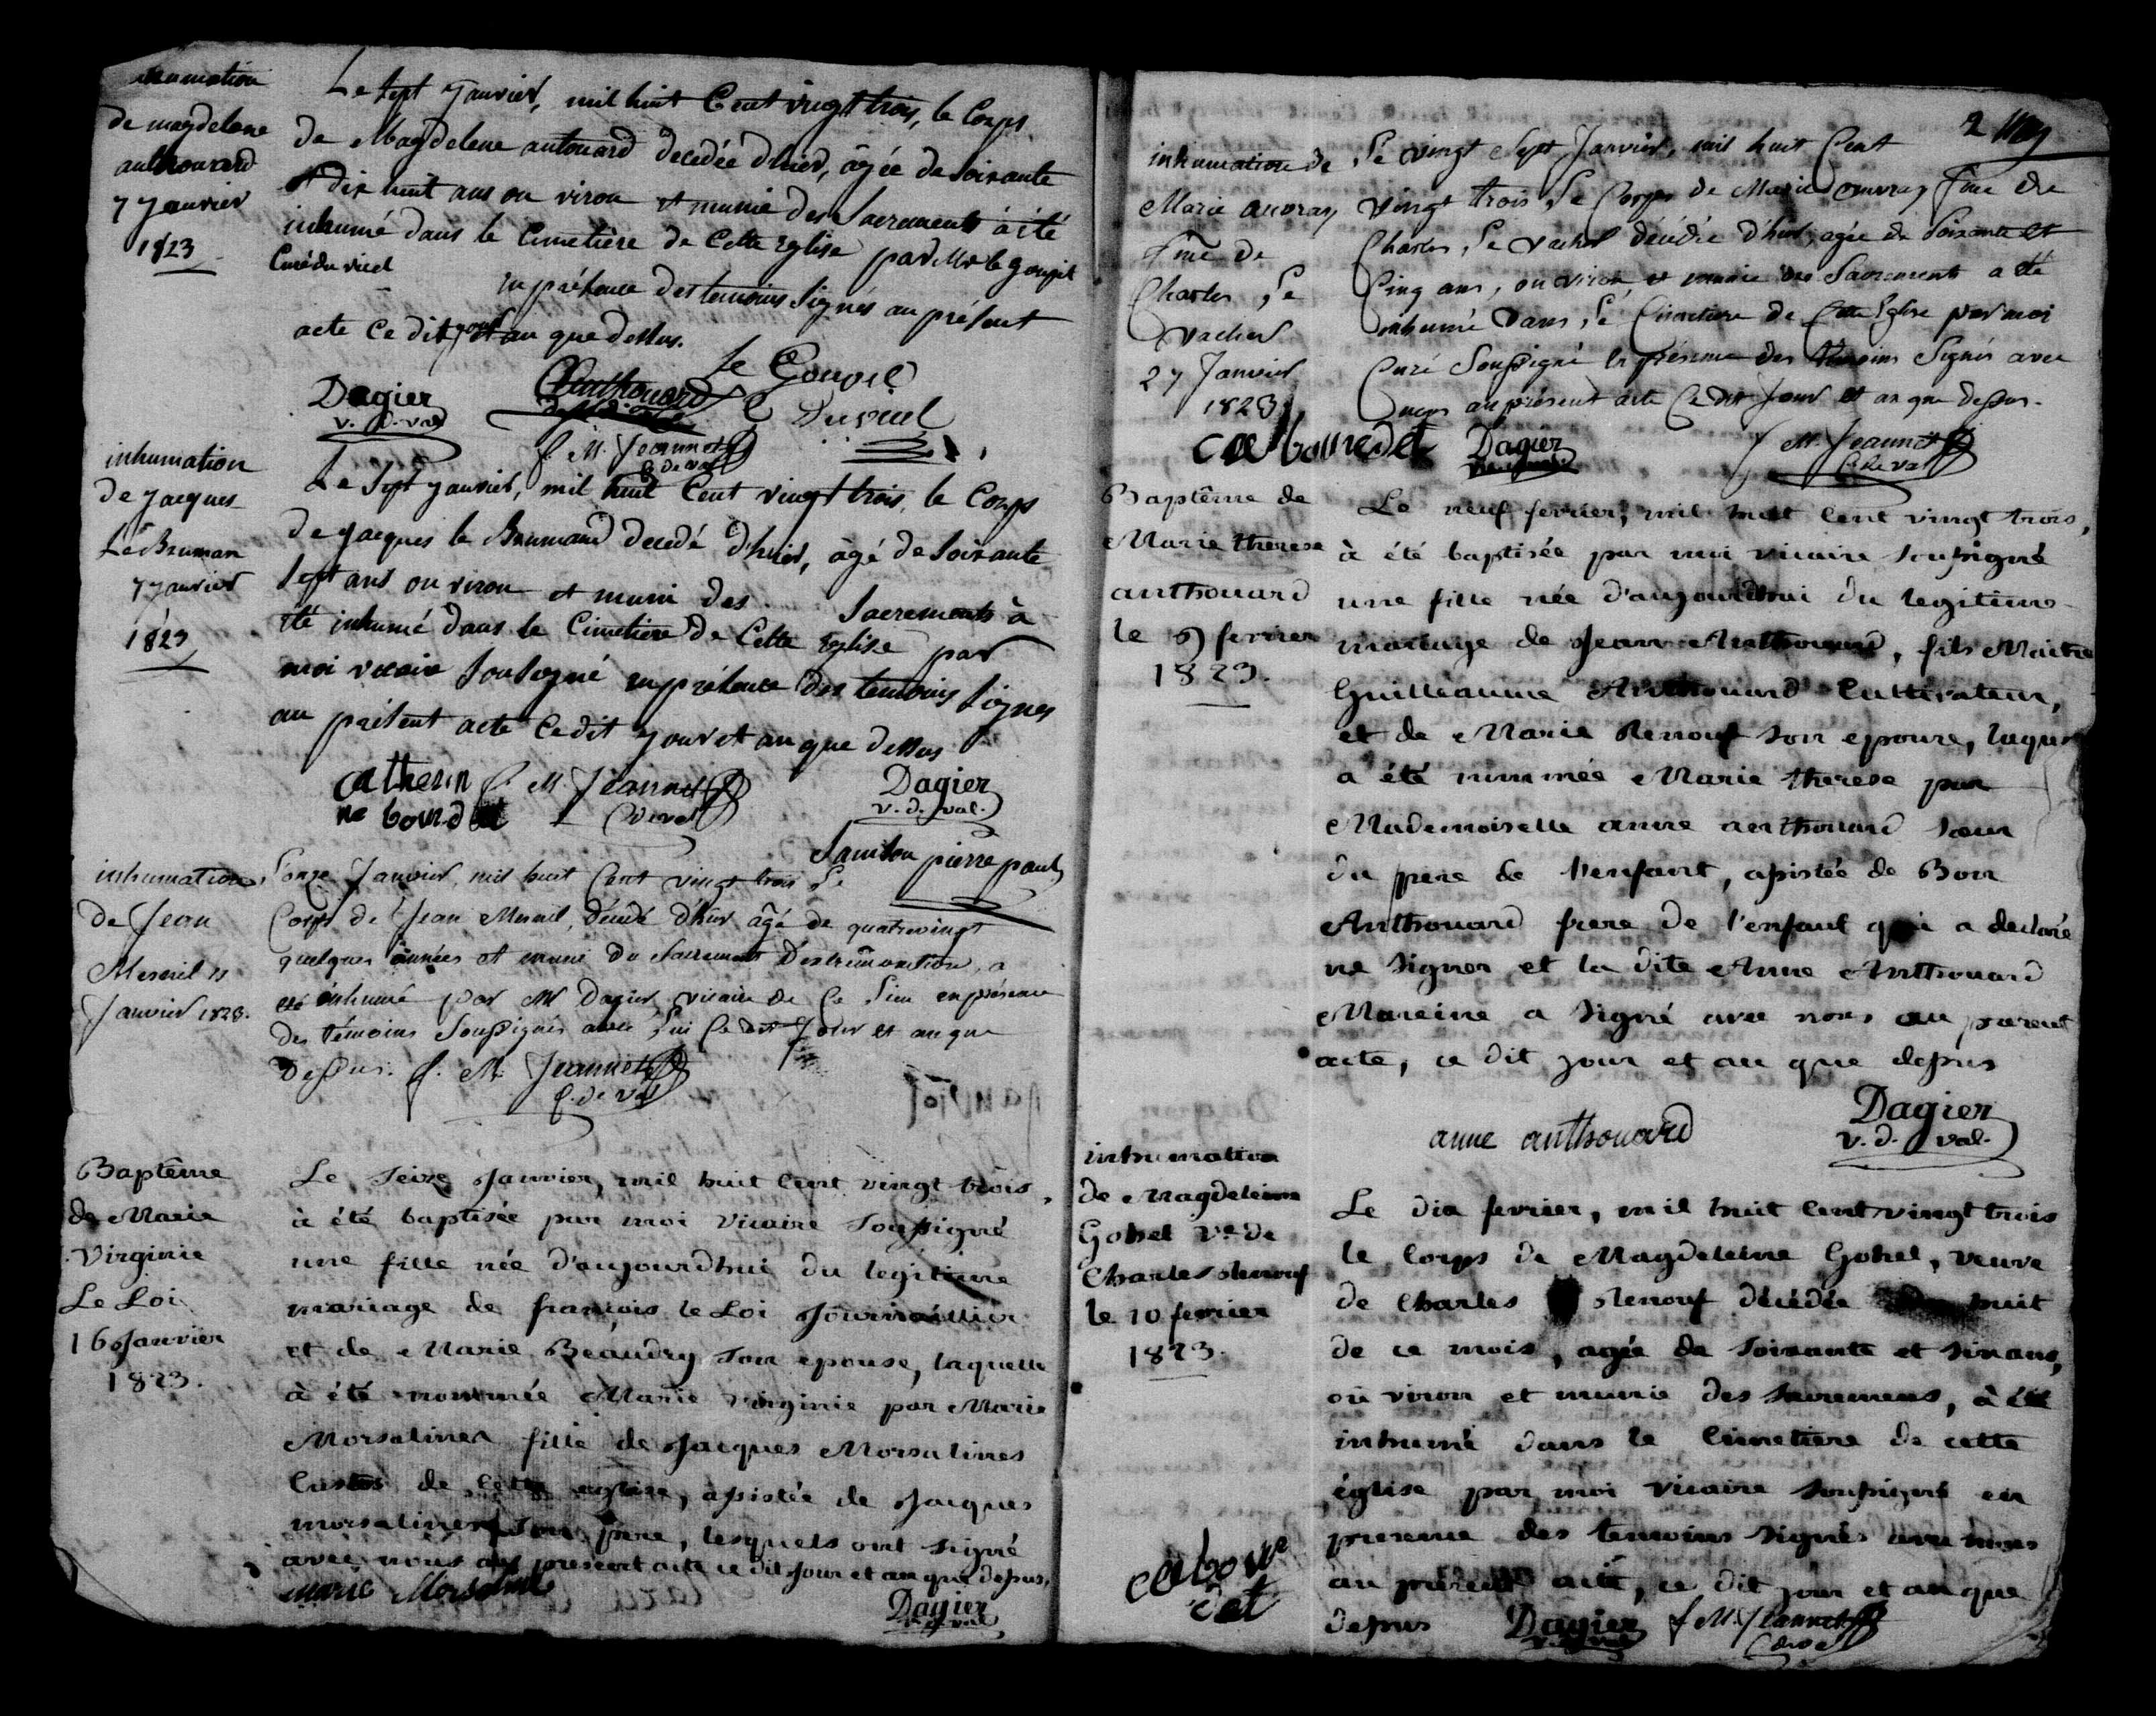 inhumation
de magdelene
anthouard
7 janvier
1823
Le sept janvier, mil huit Cent vingt trois, le Corps
de Magdelene antouard decedée d'hier, âgée de soixante
et dix huit ans ou viron et munie des Sacrements à été
inhumé dans le Cimetière de Cette Eglise par Mr le goupil
Curé du vicel en présence des temoins Signés au présent
acte Ce dit jour et an que dessus.
Le Goupil
Dagier Anthouard
v. d. val Du vicel
f. M. Jeannet
C. de val
inhumation
de jacques
Le Bruman
7 janvier
1823
Le Sept janvier, mil huit Cent vingt trois, le Corps
de jacques le Brumand decedé d'hier, âgé de soixante
sept ans ou viron et muni des Sacrements à
été inhumé dans le Cimetière de Cette Eglise par
moi vicaire soussigné en présence des temoins signés
au présent acte Ce dit jour et an que dessus
Catherin f. M. Jeannet Dagier
ne bourdet C de val v. d. val.
Samson pierre paul
inhumation
de Jean
Mesnil 11
Janvier 1823.
L'onze Janvier, mil huit Cent vingt trois Le
Corps de Jean Mesnil, décédé d'hier âgé de quatrevingt
quelques années et muni du Sacrement D'extremonction, a
été inhumé par Mr Dagier vicaire de Ce Lieu en présence
des témoins Soussignés avec Lui Ce dit Jour et an que
Dessus. f. M. Jeannet
C. de Val
Baptême
de Marie
Virginie
Le Loi
16 Janvier
1823.
Le Seize Janvier, mil huit Cent vingt trois,
à été baptisée par moi Vicaire Soussigné
une fille née d'aujourdhui du legitime
mariage de françois le Loi Journaillier
et de Marie Beaudry son epouse, laquelle
à été nommée Marie Virginie par Marie
Morsalines fille de Jacques Morsalines
Custos de cette eglise, assistée de Jacques
morsalines son pere, lesquels ont signé
avec nous au present acte ce dit Jour et an que dessus.
marie Morsaline
Dagier
v. d. val
2
inhumation de
Marie auvray
fme de
Charles Le
Vacher
27 Janvier
1823
Le vingt Sept Janvier, mil huit Cent
Vingt trois Le Corps de Marie auvray fme de
Charles Le Vacher décédée d'hier, agée de Soixante et
Cinq ans, ou viron, et munie des Sacrements a été
inhumé dans Le Cimetiere de Cette Eglise par moi
Curé Soussigné en présence des témoins Signés avec
nous au présent acte Ce dit Jour et an que dessus.
Ca bourdet Dagier f M. Jeannet
C de val
Baptême de
Marie therese
anthouard
le 9 fevrier
1823.
Le neuf fevrier, mil huit Cent vingt trois,
à été baptisée par moi vicaire soussigné
une fille née d'aujourdhui du legitime
mariage de Jean Anthouard, fils Maitre
Guilleaume Anthouard Cultivateur,
et de Marie Renouf son epouse, laquelle
a été nommée Marie therese par
Mademoiselle anne anthouard sœur
du pere de l'enfant, assistée de Bon
Anthouard frere de l'enfant qui a declaré
ne signer et la dite Anne Anthouard
Mareine a signé avec nous au present
acte, ce dit jour et an que dessus
anne anthouard Dagier
v. d. val.
inhumation
de Magdeleine
Gohel Ve de
Charles Renouf
le 10 fevrier
1823.
Le dix fevrier, mil huit Cent vingt trois
le Corps de Magdeleine Gohel, veuve
de Charles Renouf décédée huit
de ce mois, agée de soixante et six ans,
ou viron et munie des sacremens, à été
inhumé dans le Cimetiere de cette
église par moi Vicaire soussigné en
presence des temoins signés avec nous
au present acte, ce dit jour et an que
dessus Dagier f M. Jeannet
C de val
ca bour
det